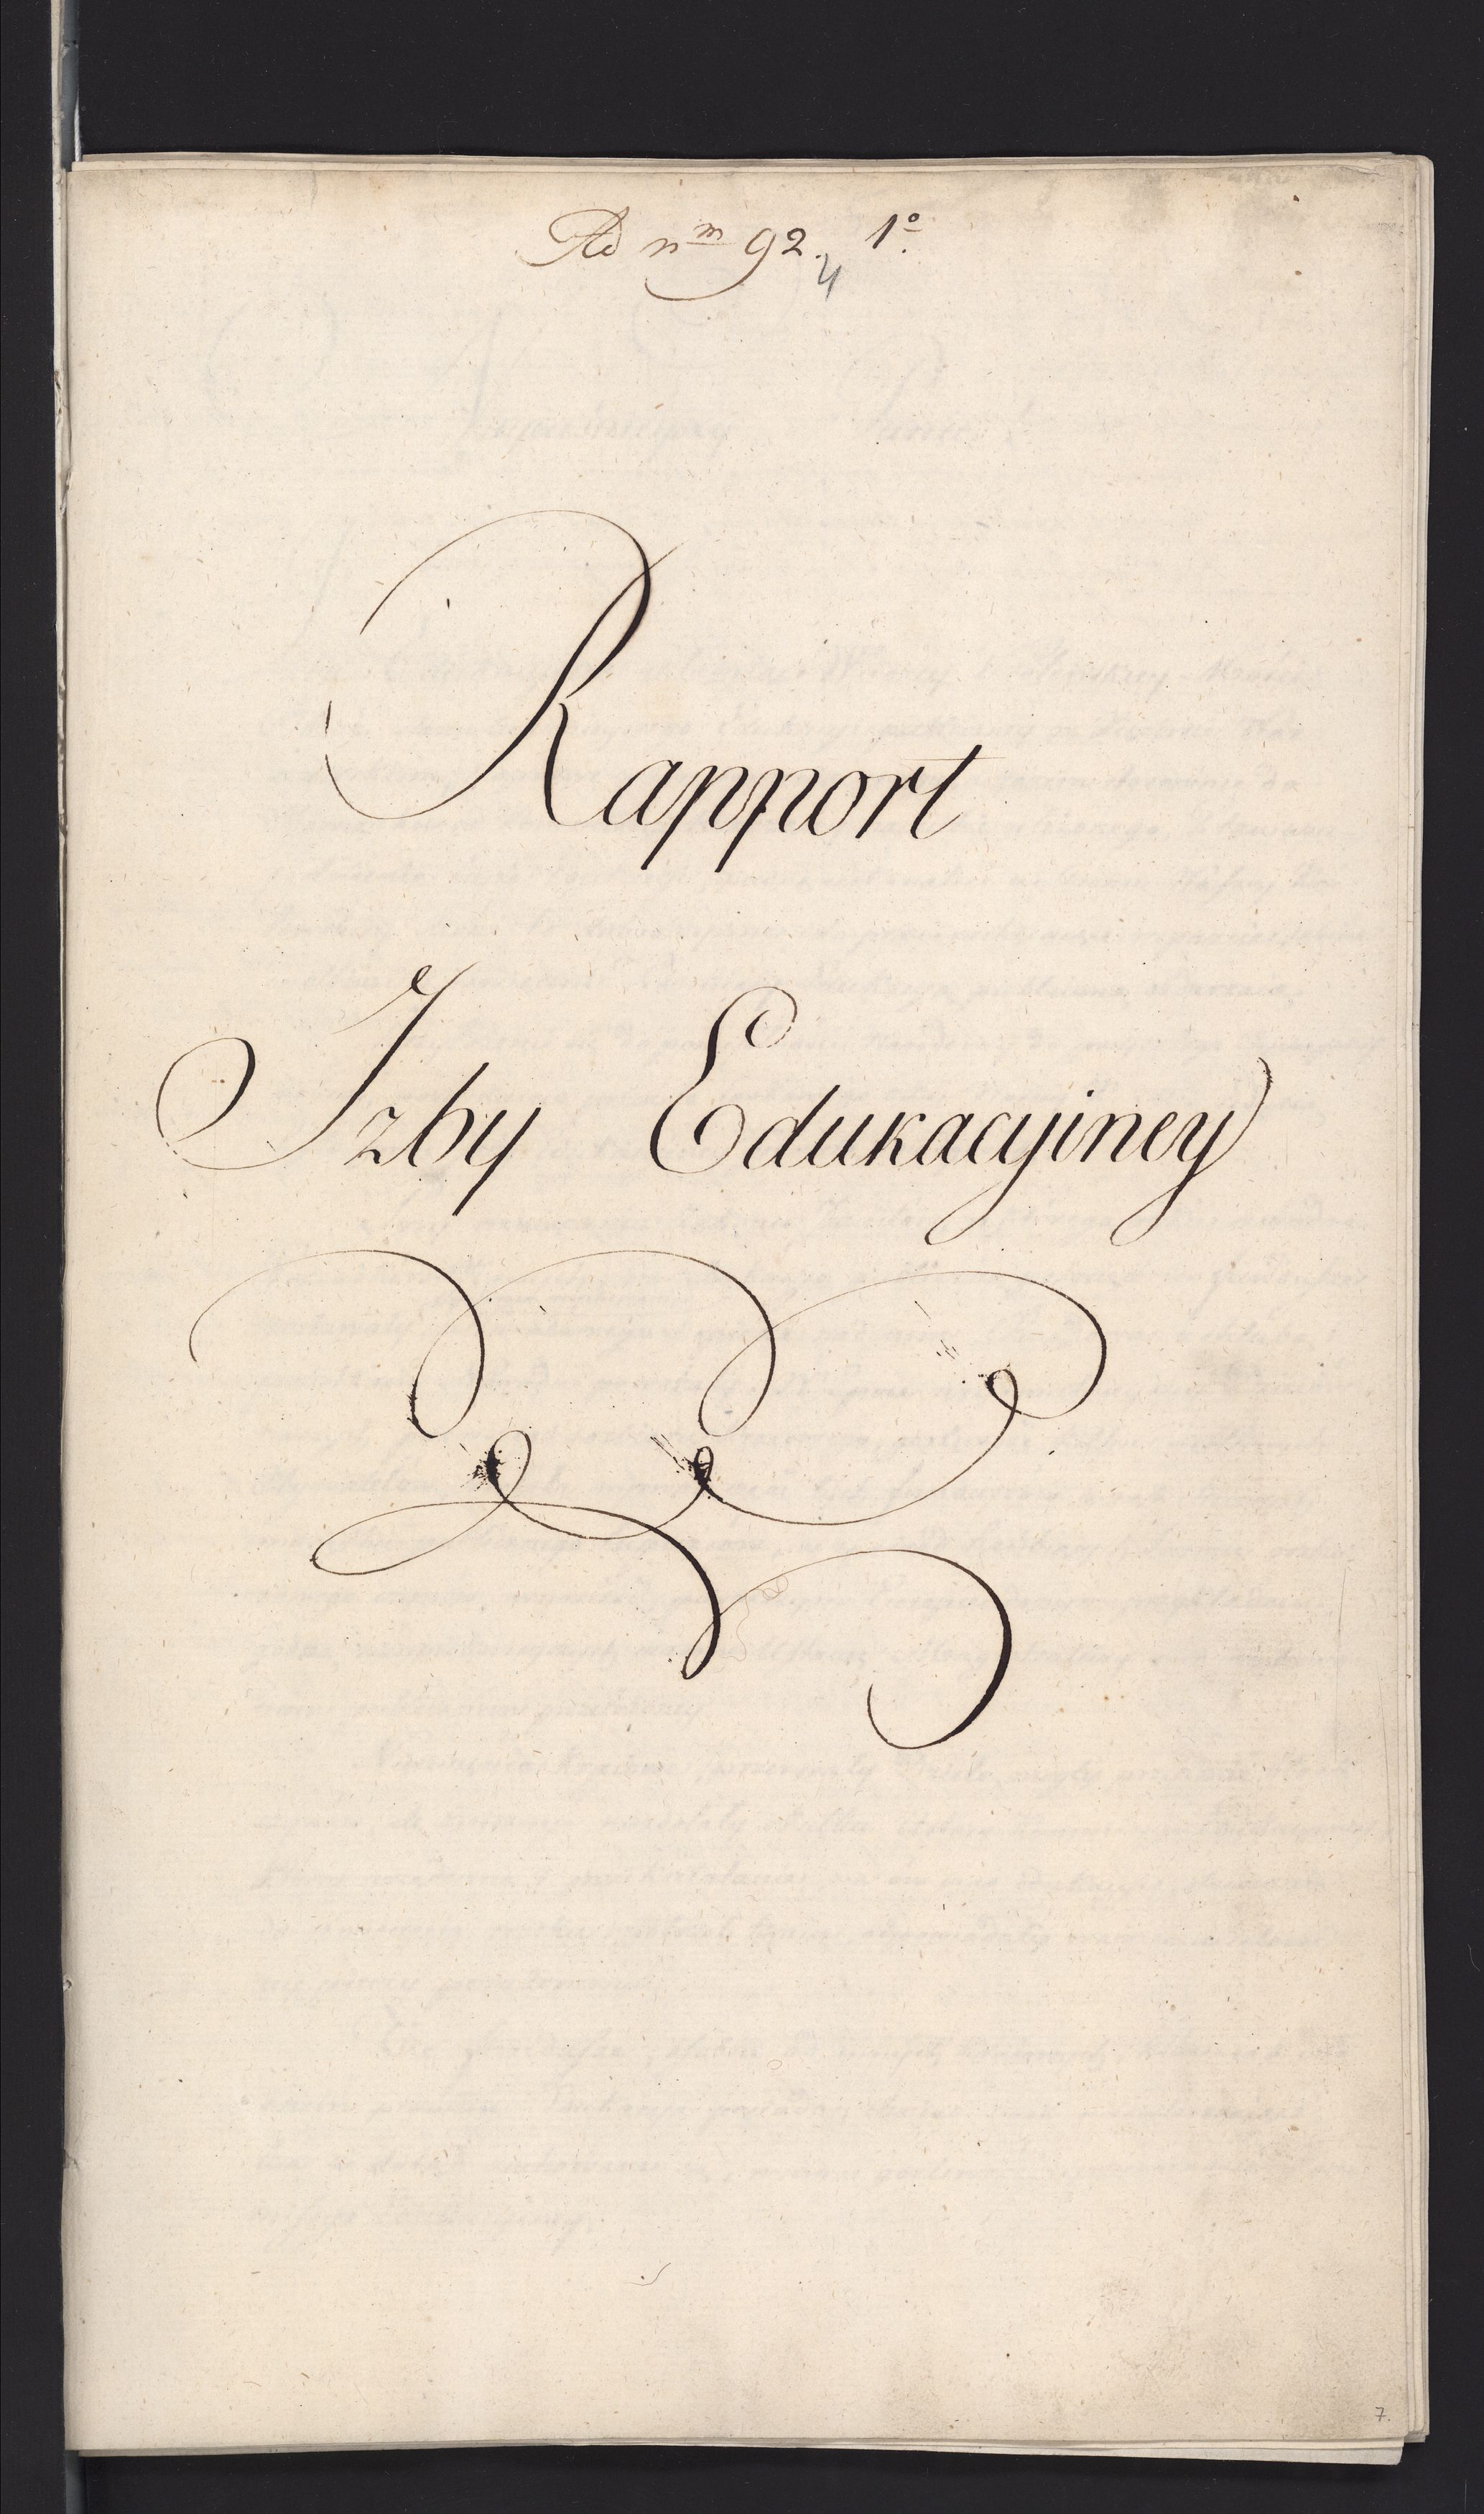 Ad nm 92. 1o.
4
Rapport
Izby Edukacyiney
7.